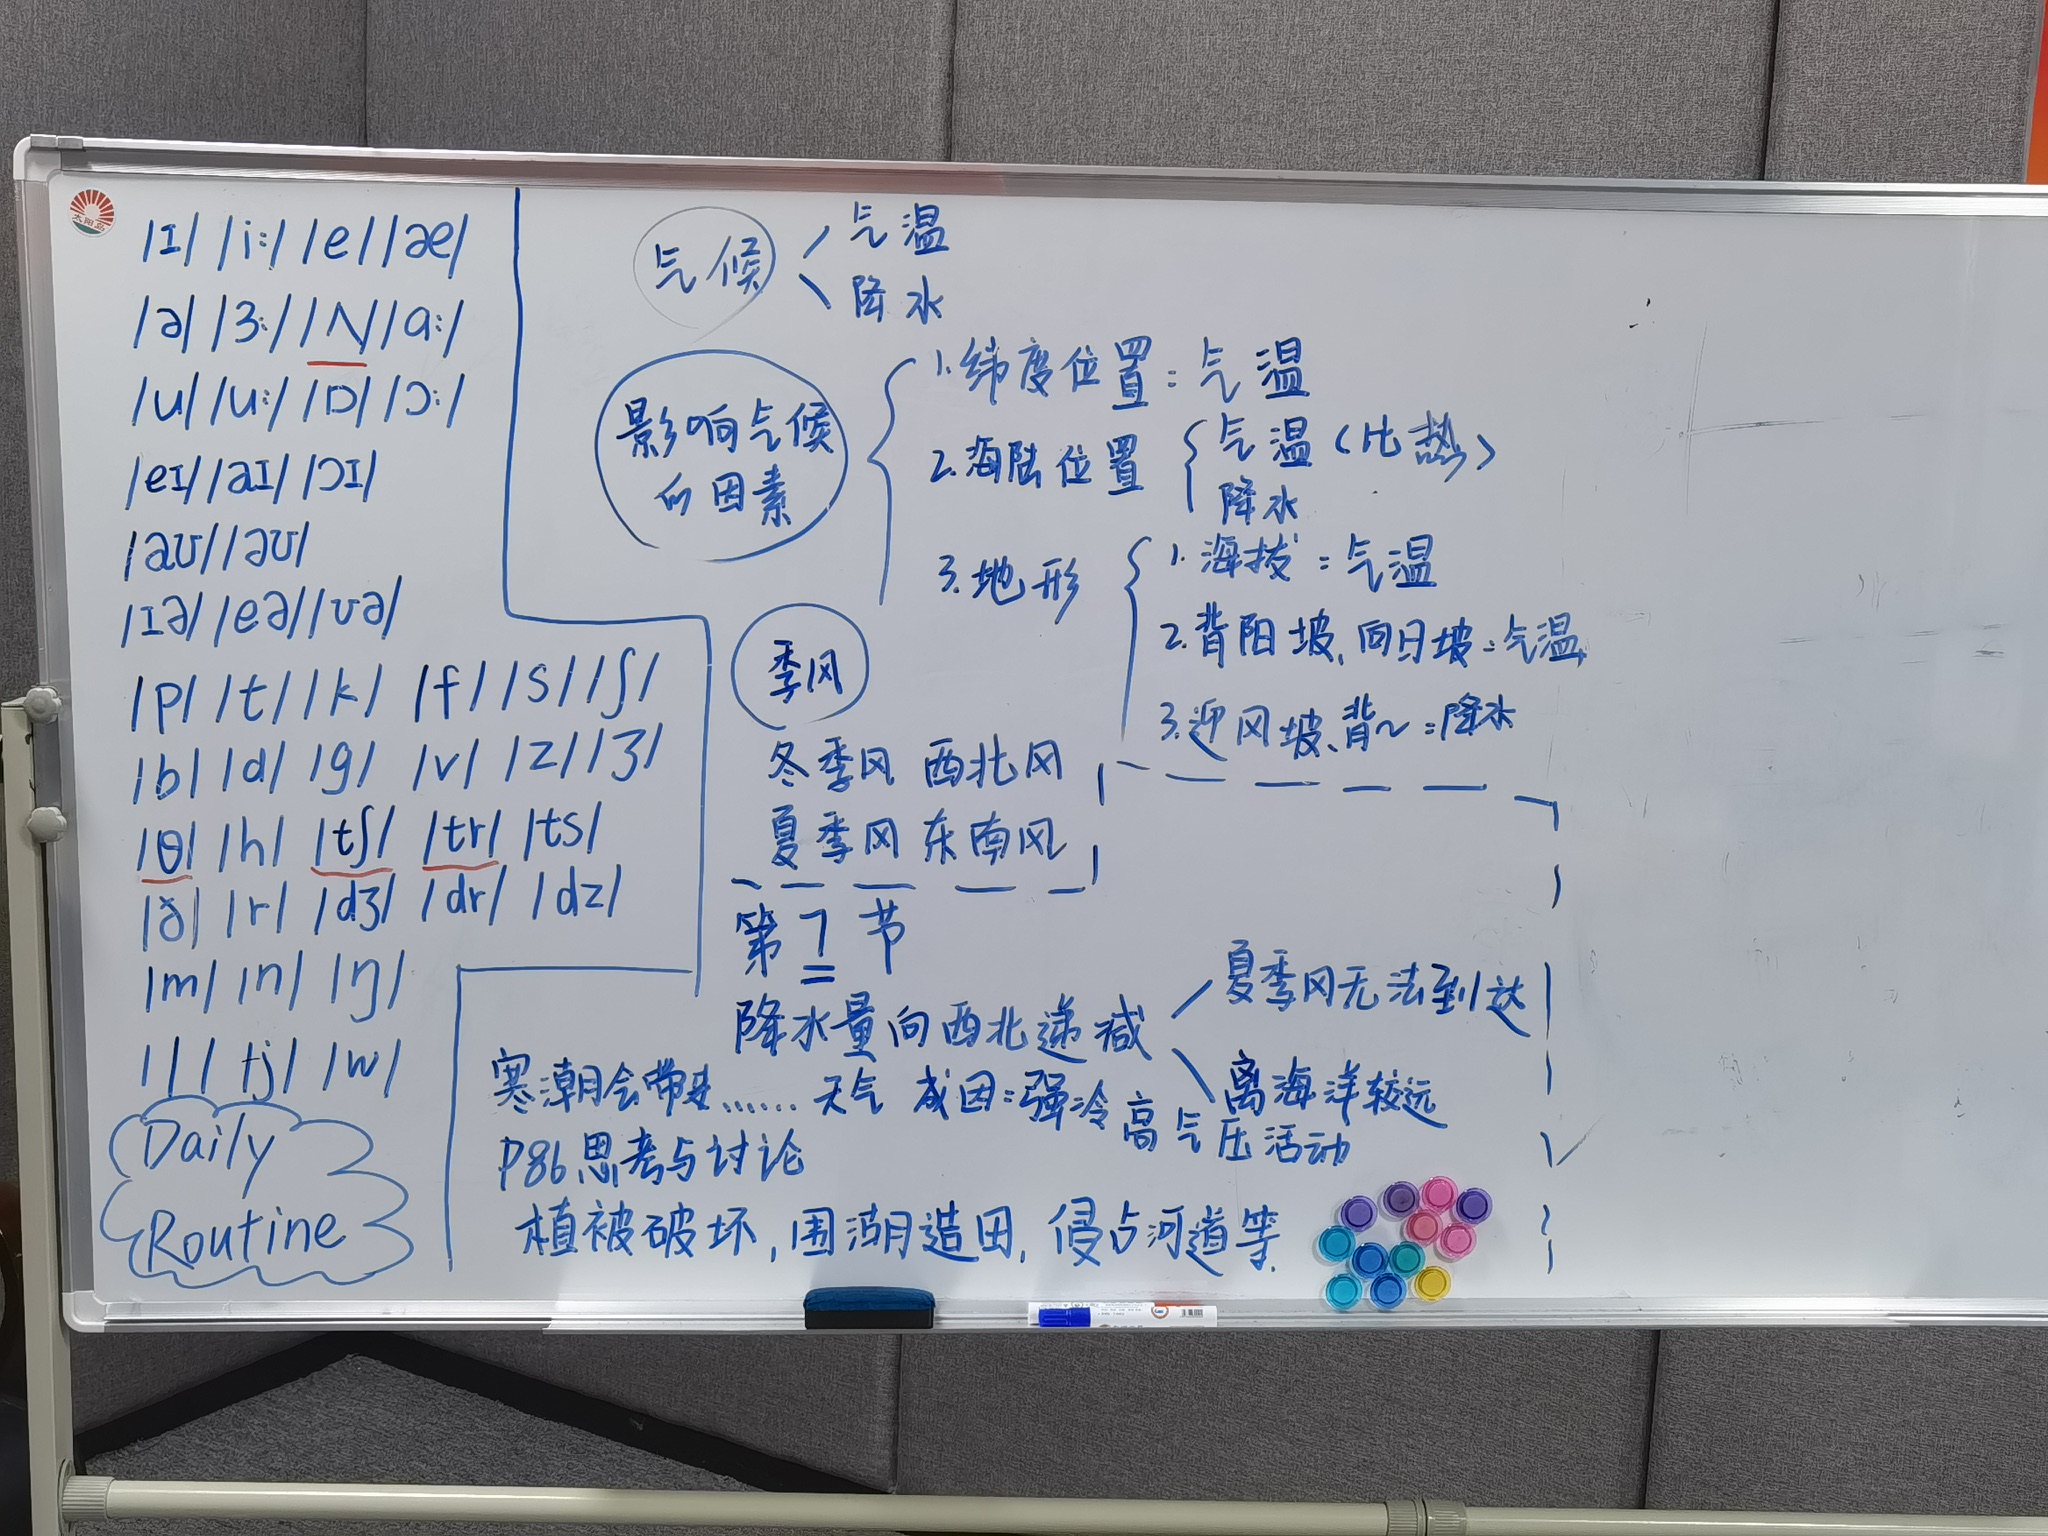 /ɪ/ /i:/ /e/ /æ/
/ə/ /ɜ:/ /ʌ/ /ɑ:/
/u/ /u:/ /ɒ/ /ɔ:/
/eɪ/ /aɪ/ /ɔɪ/
/aʊ/ /əʊ/
/ɪə/ /eə/ /ʊə/
/p/ /t/ /k/ /f/ /s/ /ʃ/
/b/ /d/ /g/ /v/ /z/ /ʒ/
/θ/ /h/ /tʃ/ /tr/ /ts/
/ð/ /r/ /dʒ/ /dr/ /dz/
/m/ /n/ /ŋ/
/l/ /j/ /w/
Daily
Routine
气候
气温
降水
影响气候
的因素
1.纬度位置:气温
2.海陆位置
气温(比热)
降水
3.地形
1.海拔:气温
2.背阳坡、向日坡:气温
3.迎风坡、背~:降水
季风
冬季风 西北风
夏季风 东南风
第7节
降水量向西北递减
夏季风无法到达
离海洋较远
寒潮会带来……天气 成因:强冷高气压活动
P86思考与讨论
植被破坏,围湖造田,侵占河道等.
太阳岛